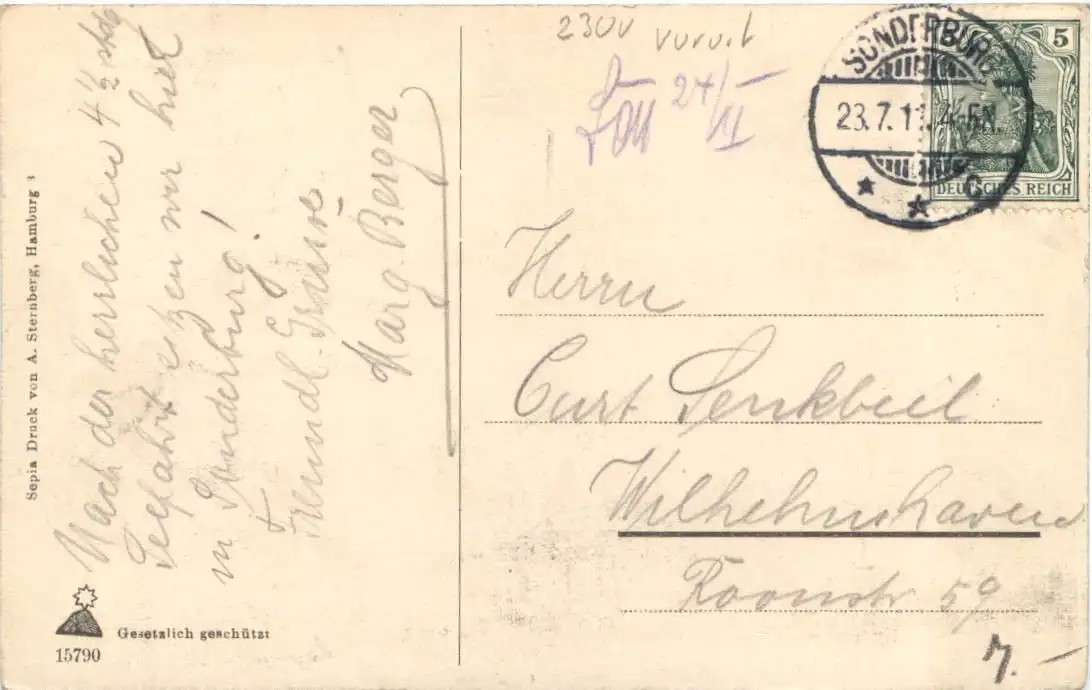 Nach der herrlichen 4 1/2 stdg
Seefahrt sitzen wir hier
in Sonderburg!
Freundl. Grüße
Marg. Berger
Sepia Druck von A. Sternberg, Hamburg 3
Gesetzlich geschützt
15790
2300
24/VII
SONDERBURG
23.7.11. 4-5N
C
5
DEUTSCHES REICH
Herrn
Curt Senkbeil
Wilhelmshaven
Roonstr 59
7.-